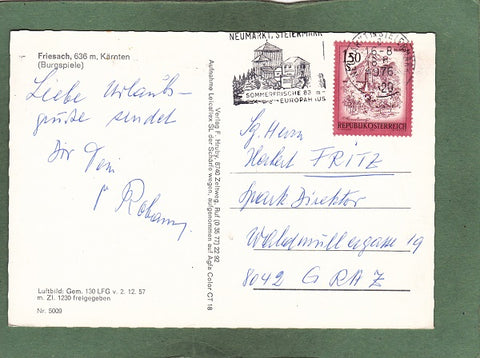 Friesach, 636 m, Kärnten
(Burgspiele)
Liebe Urlaubs-
grüße sendet
Dir Dein
Luftbild: Gem. 130 LFG v. 2. 12. 57
m. Zl. 1230 freigegeben
Nr. 5009
Verlag F. Hruby, 8740 Zeltweg, Ruf (0 35 77) 22 92
Aufnahme Leicaflex SL der Schärfe wegen, aufgenommen auf Agfa Color CT 18
NEUMARKT, STEIERMARK
SOMMERFRISCHE 83
EUROPAHAUS
16-8
1976
20
1.50
REPUBLIK ÖSTERREICH
Sg. Herrn
Herbert FRITZ
Direktor
Waldmüllergasse 19
8042 GRAZ